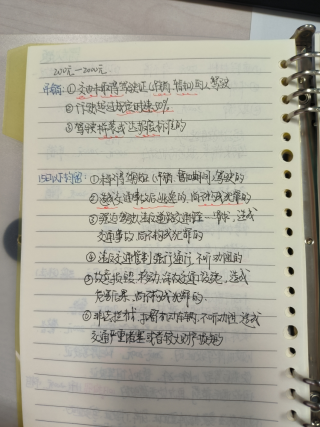 200元—2000元
吊销：①交由未取得驾驶证(吊销、暂扣)的人驾驶
②行驶超过规定时速50%
③驾驶拼装或达报废标准的
15日以下拘留：①未取得驾驶证(吊销、暂扣期间)驾驶的
②造成交通事故后逃逸的，尚不构成犯罪的
③强迫驾驶人违反道路交通 造成
交通事故的，尚不构成犯罪的
④违反交通管制强行通行，不听劝阻的
⑤故意损毁、移动、涂改交通设施，造成
危害后果，尚不构成犯罪的
⑥非法拦截、扣留机动车辆，不听劝阻，造成
交通严重阻塞或者较大财产损失的